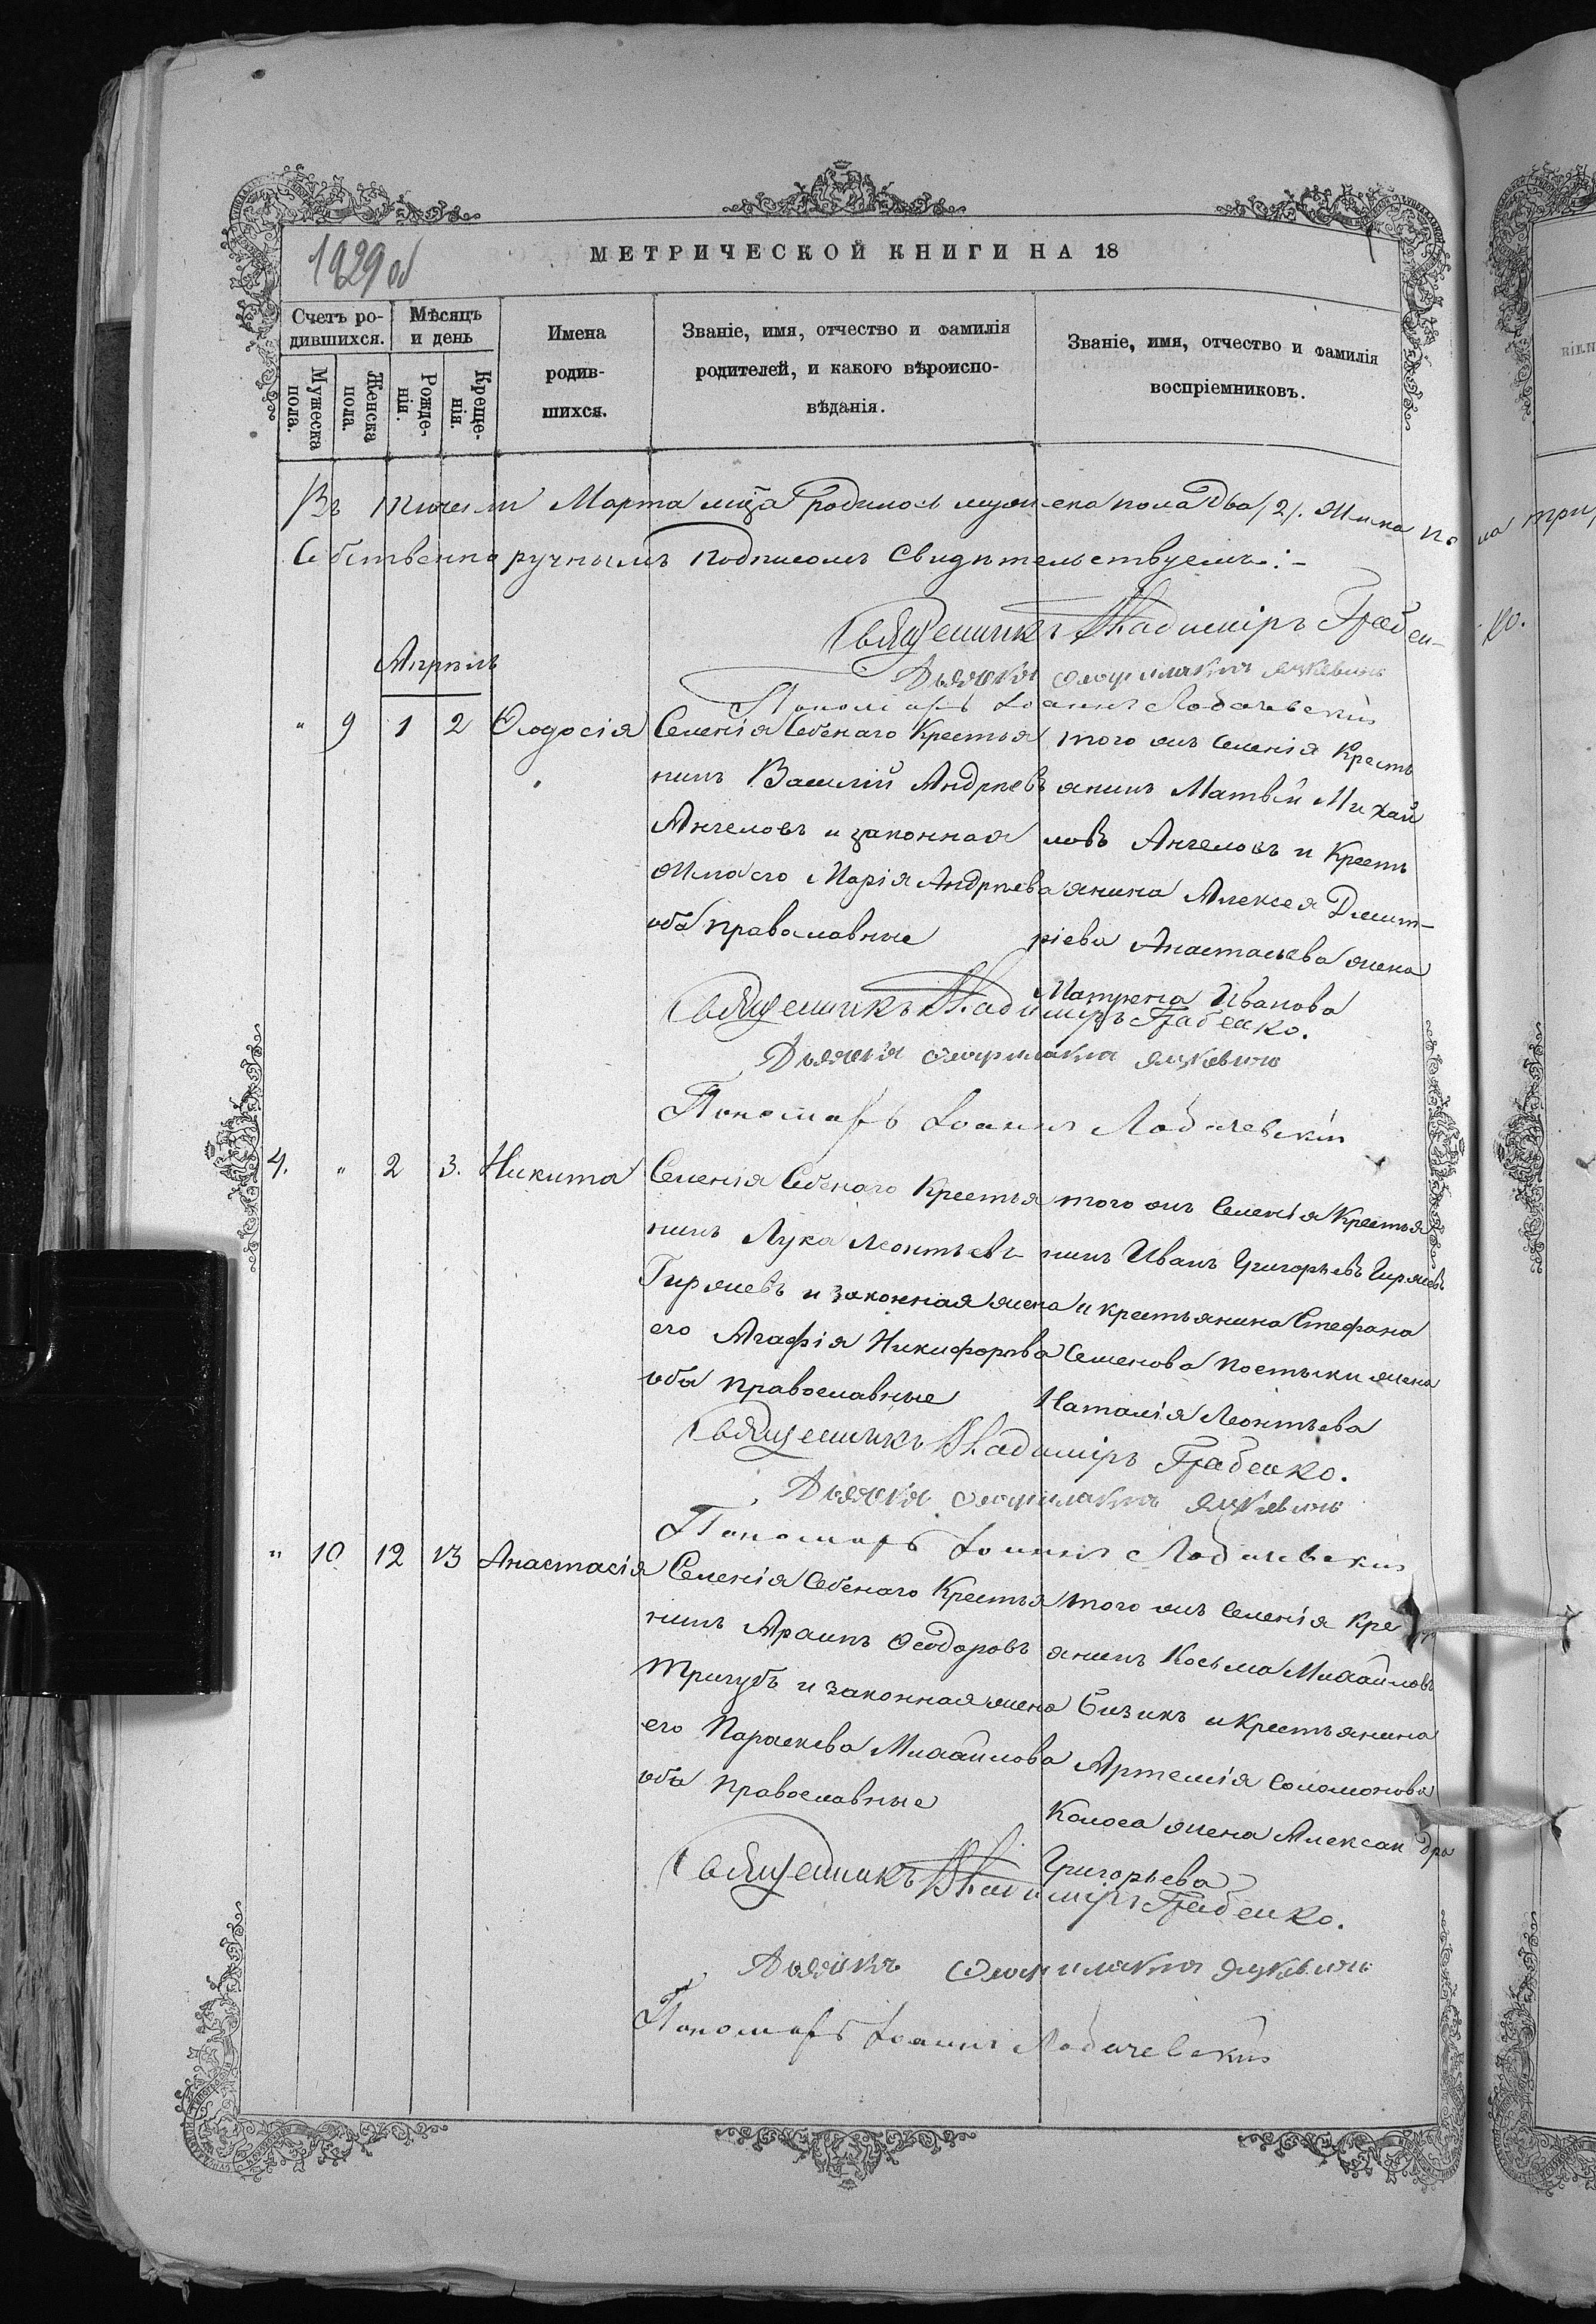 1929 об
МЕТРИЧЕСКОЙ КНИГИ НА 18
Счетъ ро-
дившихся.
Мѣсяцъ
и день
Мужеска
пола.
Женска
пола.
Рожде-
нія.
Креще-
нія.
Имена
родив-
шихся.
Званіе, имя, отчество и фамилія
родителей, и какого вѣроиспо-
вѣданія.
Званіе, имя, отчество и фамилія
воспріемниковъ.
Въ Марта мца родилось мужска пола два /2/. Жнска по
на три
Собственноручнымъ подписомъ свидѣтельствуемъ:-
Священникъ Владиміръ Грабен-
ко.
Дьячокъ Ѳеофилактъ Яцкевичъ
Пономарь Іоаннъ Лобачевскій
Апрѣль
" 9 1 2 Ѳеодосія
Селенія Кресть
нинъ Василій Андрѣевъ
Ангеловъ и законная
жена его Марія Андрѣева
оба православные
того жъ селенія Кресть
янинъ Матвѣй Михай
ловъ Ангеловъ и Кресть
янина Алексея Димит-
ріева Анастасьева жена
Матрена Иванова
Священникъ Владиміръ Грабенко.
Дьячокъ Ѳеофилактъ Яцкевичъ
Пономарь Іоаннъ Лобачевскій
4. " 2 3. Никита
Селенія Крестья
нинъ Лука Леонтьевъ
Гиржевъ и законная жена
его Агафія Никифорова
оба православные
того жъ селенія Крестья
нинъ Иванъ Григорьевъ Гиржевъ
и крестьянина Стефана
Семенова жена
Наталія Леонтьева
Священникъ Владиміръ Грабенко.
Дьячокъ Ѳеофилактъ Яцкевичъ
Пономарь Іоаннъ Лобачевскій
" 10 12 13 Анастасія
Селенія Крестья
нинъ Ѳеодоровъ
Тригубъ и законная жена
его Параскева Михайлова
оба православные
того жъ селенія Кре
янинъ Косьма Михайловъ
Бизикъ и Крестьянина
Артемія Соломонова
Колоса жена Александра
Григорьева
Священникъ Владиміръ Грабенко.
Дьячокъ Ѳеофилактъ Яцкевичъ
Пономарь Іоаннъ Лобачевскій